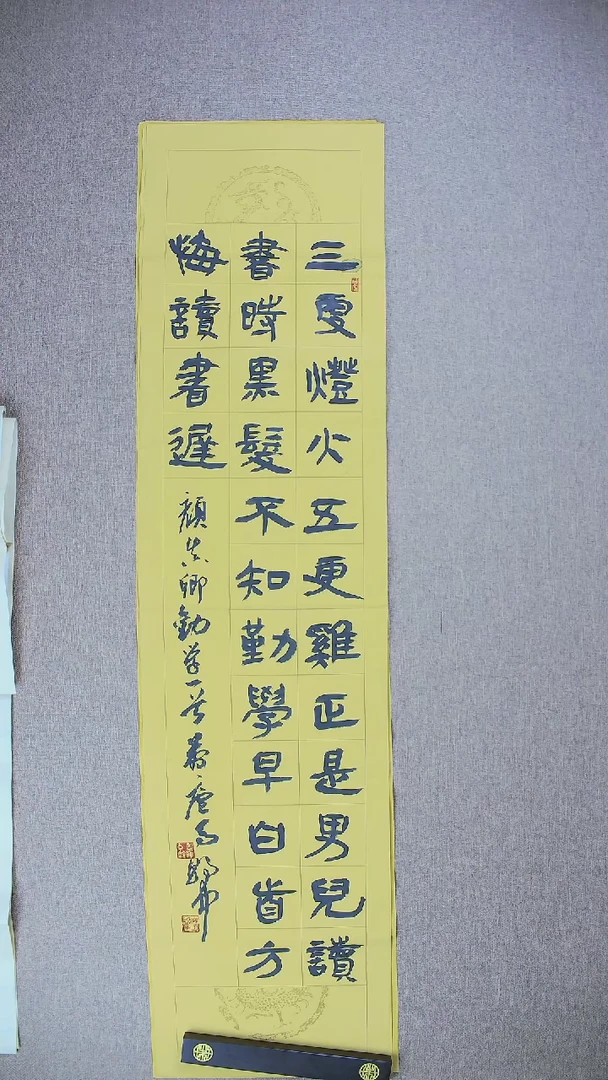 三更燈火五更雞正是男兒讀
書時黑髮不知勤學早白首方
悔讀書遲
顏真卿勸學一首